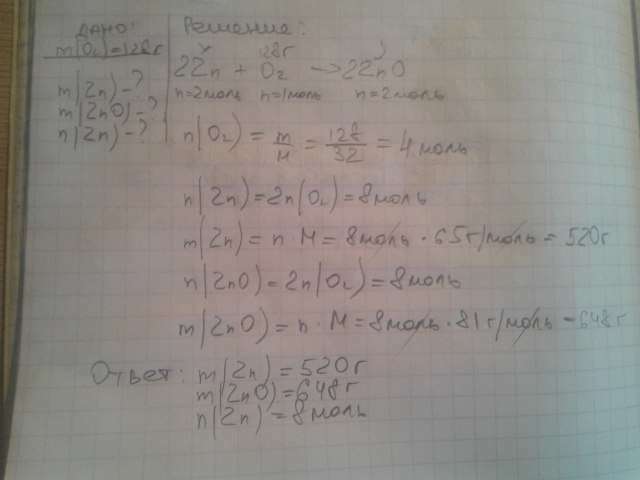 ДАНО:
m(O₂)=128г
m(Zn)-?
m(ZnO)-?
n(Zn)-?
Решение:
128г
2Zn + O₂ → 2ZnO
n=2моль n=1моль n=2моль
n(O₂) = m/M = 128/32 = 4моль
n(Zn)=2n(O₂)=8моль
m(Zn) = n · M = 8моль · 65г/моль = 520г
n(ZnO)=2n(O₂)=8моль
m(ZnO) = n · M = 8моль · 81г/моль = 648г
Ответ: m(Zn)=520г
m(ZnO)=648г
n(Zn)=8моль